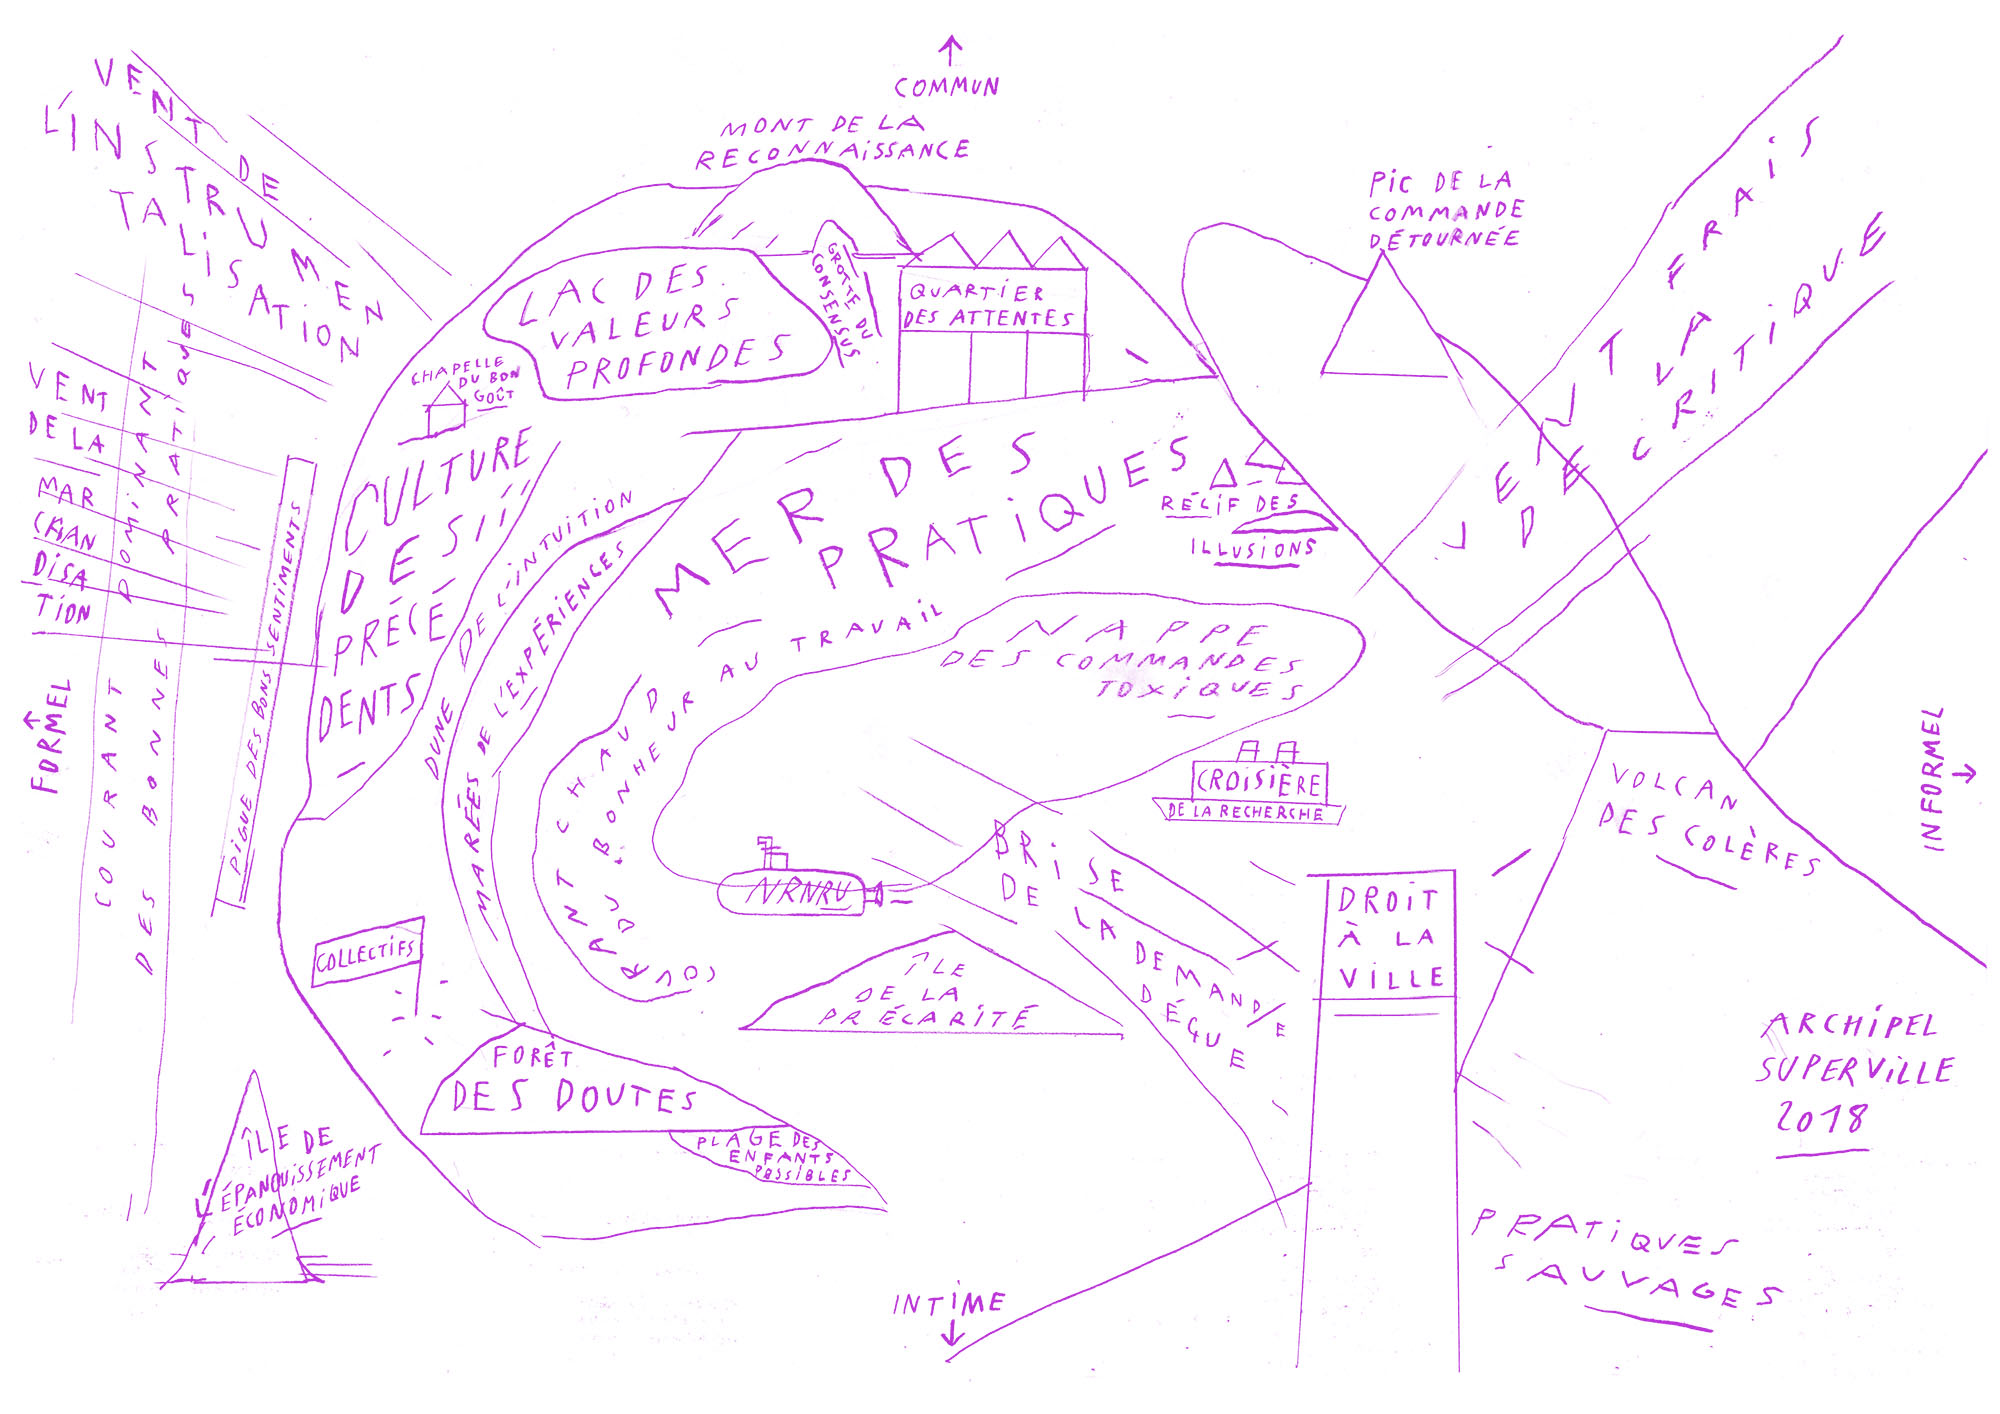 COMMUN
MONT DE LA
RECONNAISSANCE
VENT DE
L'INSTRUMEN
TALISATION
PIC DE LA
COMMANDE
DÉTOURNÉE
VENT FRAIS
DE LA CRITIQUE
LAC DES
VALEURS
PROFONDES
GROTTE DU
CONSENSUS
QUARTIER
DES ATTENTES
CHAPELLE
DU BON
GOÛT
VENT
DE LA
MAR
CHAN
DISA
TION
COURANT DOMINANT
DES BONNES PRATIQUES
DIGUE DES BONS SENTIMENTS
CULTURE
DES
PRÉCÉ
DENTS
DUNE DE L'INTUITION
MARÉES DE L'EXPÉRIENCES
MER DES
PRATIQUES
RÉCIF DES
ILLUSIONS
COURANT CHAUD
DU BONHEUR AU TRAVAIL
NAPPE
DES COMMANDES
TOXIQUES
FORMEL
INFORMEL
CROISIÈRE
DE LA RECHERCHE
VOLCAN
DES COLÈRES
NRNRU
BRISE
DE LA DEMANDE
DÉÇUE
DROIT
À LA
VILLE
COLLECTIFS
ÎLE
DE LA
PRÉCARITÉ
FORÊT
DES DOUTES
PLAGE DES
ENFANTS
POSSIBLES
ARCHIPEL
SUPERVILLE
2018
ÎLE DE
L'ÉPANOUISSEMENT
ÉCONOMIQUE
PRATIQUES
SAUVAGES
INTIME